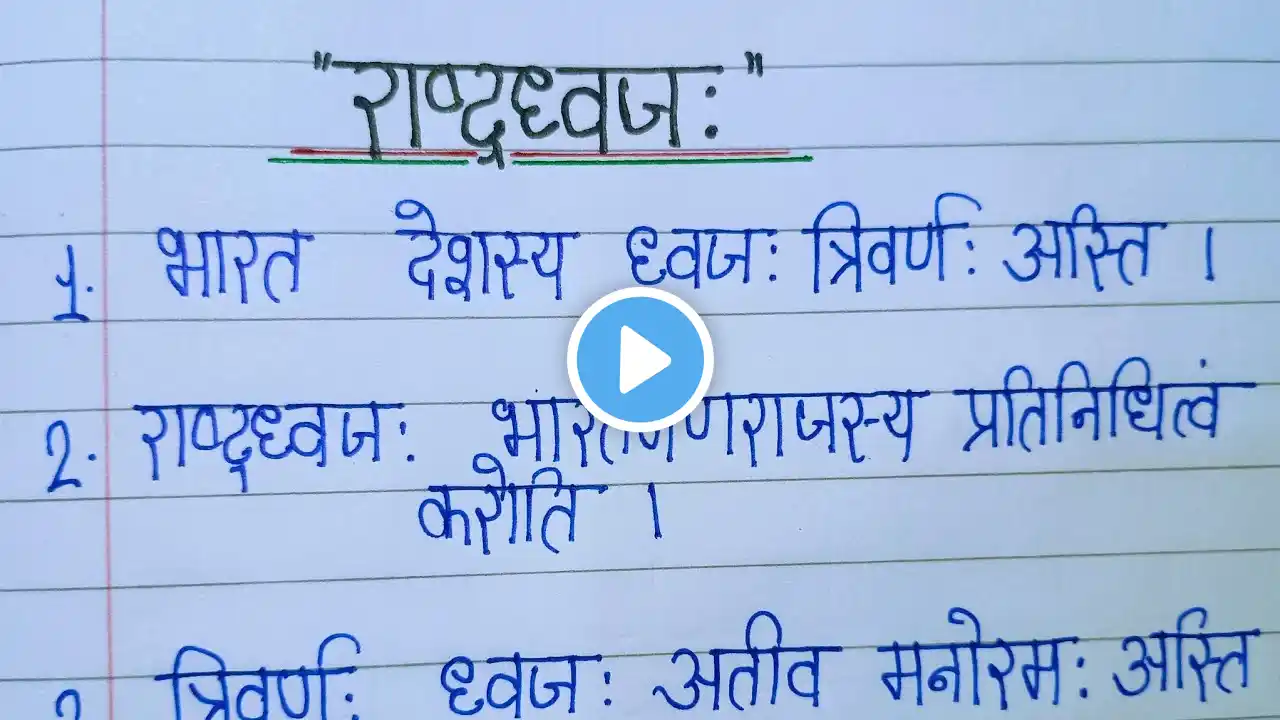 "राष्ट्रध्वजः"
1. भारत देशस्य ध्वजः त्रिवर्णः अस्ति ।
2. राष्ट्रध्वजः प्रतिनिधित्वं
करोति ।
त्रिवर्णः ध्वजः अतीव मनोरमः अस्ति